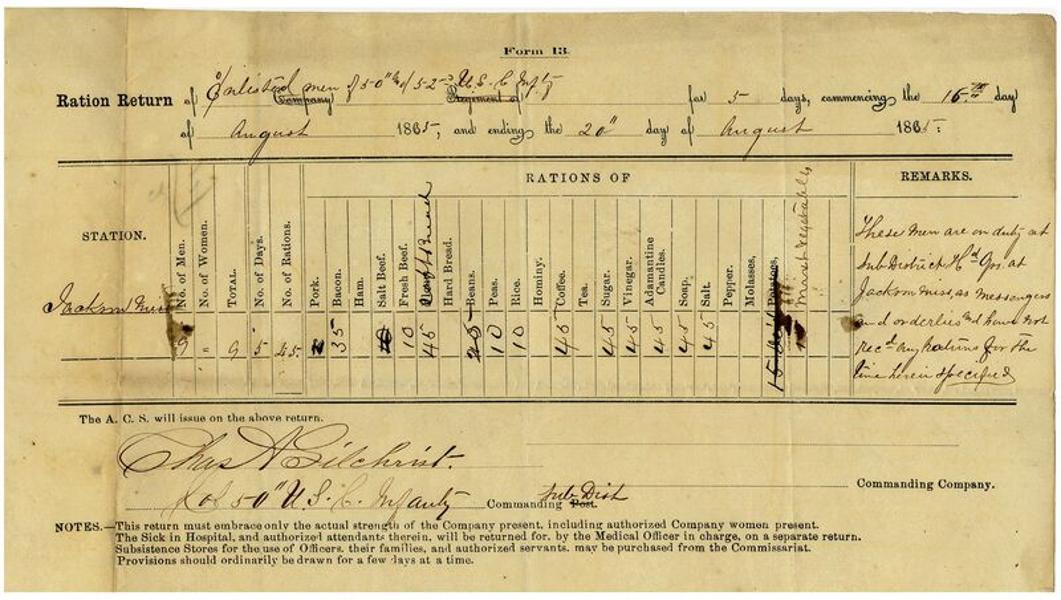 Form 13.
Ration Return of Enlisted men of 50th & 52nd U.S.C. Infty (Company) Regiment of for 5 days, commencing the 16th day
of August 1865; and ending the 20" day of August 1865:
STATION. No. of Men. No. of Women. TOTAL. No. of Days. No. of Rations. RATIONS OF REMARKS.
Pork. Bacon. Ham. Salt Beef. Fresh Beef. Hard Bread. Beans. Peas. Rice. Hominy. Coffee. Tea. Sugar. Vinegar. Adamantine Candles. Soap. Salt. Pepper. Molasses, Potatoes,
Jackson Miss 9 " 9 5 45 35 10 45 10 10 45 45 45 45 45 45
These men are on duty at
Sub District Hd Qrs. at
Jackson Miss, as messengers
and orderlies and have not
recd any rations for the
time herein specified
The A. C. S. will issue on the above return.
Chas A Gilchrist.
Commanding Company.
Col 50" U. S. C. Infanty Commanding Post. Sub Dist
NOTES.—This return must embrace only the actual strength of the Company present, including authorized Company women present.
The Sick in Hospital, and authorized attendants therein, will be returned for, by the Medical Officer in charge, on a separate return.
Subsistence Stores for the use of Officers, their families, and authorized servants, may be purchased from the Commissariat.
Provisions should ordinarily be drawn for a few days at a time.